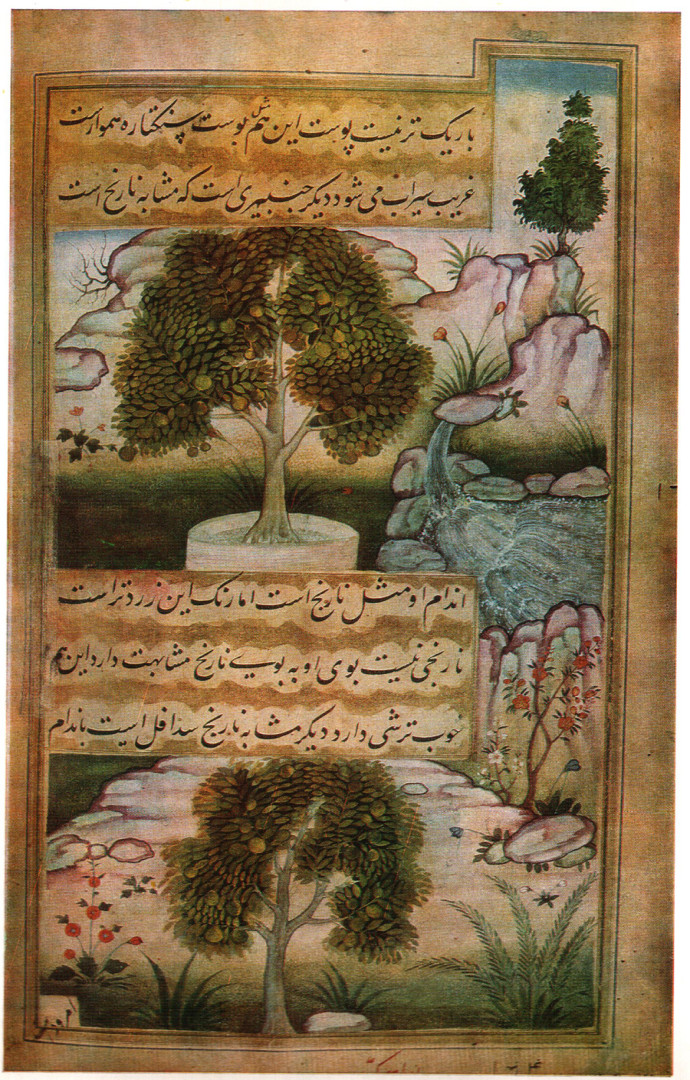 باریک تر نیست پوست این هم مثل پوست سنکتاره هموار است
غریب سیراب می شود دیکر جنبیری است که مشابه نارنج است
اندام او مثل نارنج است اما رنک این زرد تر است
نارنجی نیست بوی او به بوی نارنج مشابهت دارد این هم
خوب ترشی دارد دیکر مشابه نارنج سدافل است باندام